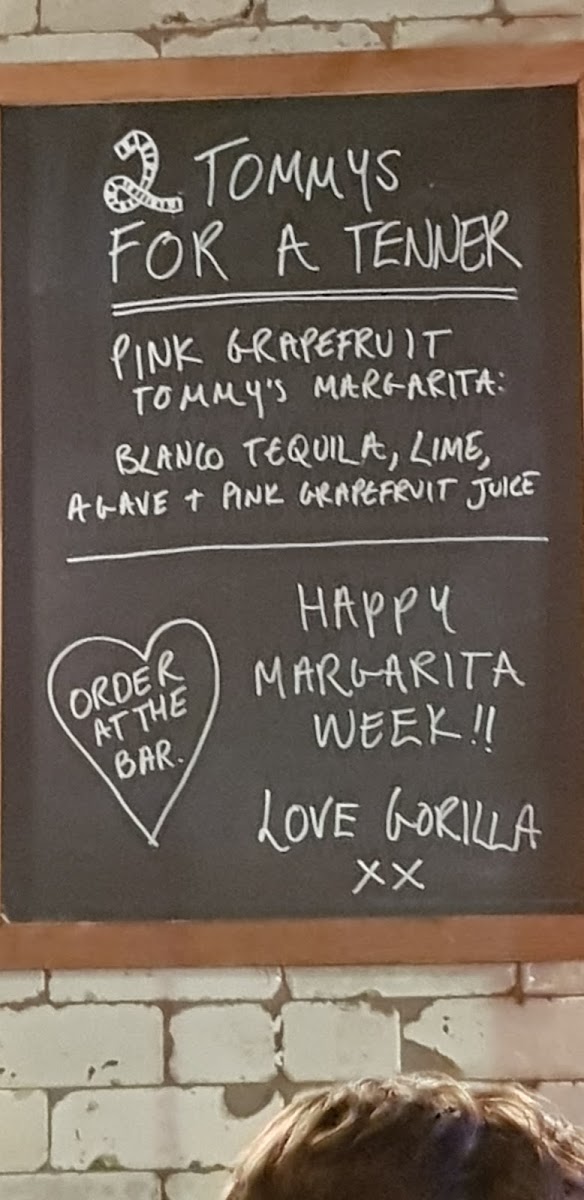 2 TOMMYS
FOR A TENNER
PINK GRAPEFRUIT
TOMMY'S MARGARITA:
BLANCO TEQUILA, LIME,
AGAVE + PINK GRAPEFRUIT JUICE
ORDER
AT THE
BAR.
HAPPY
MARGARITA
WEEK!!
LOVE GORILLA
XX